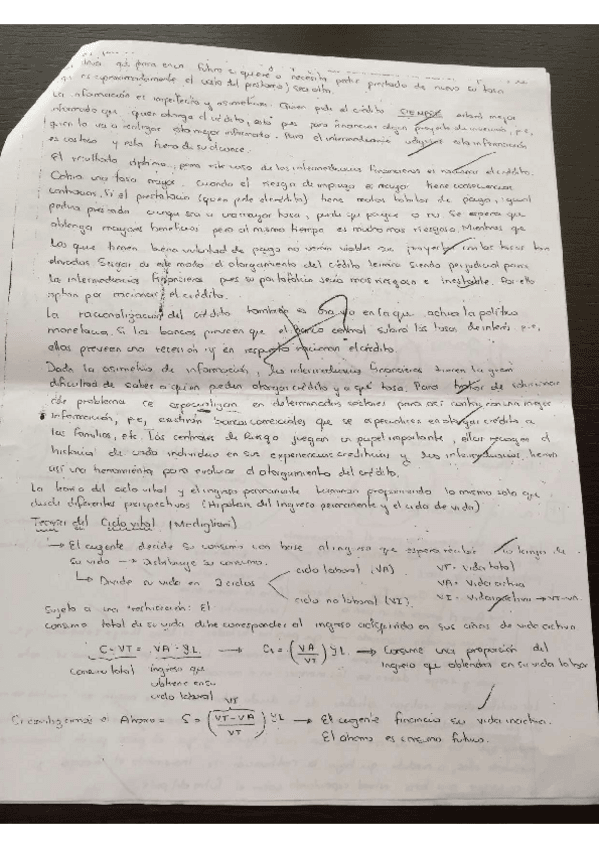 quiere o necesita pedir prestado de nuevo su tasa
es aproximadamente el costo del prestamo) sera alta.
La información es imperfecta y asimetrica. Quien pide el crédito SIEMPRE estará mejor
informado que quien otorga el crédito, esto pues para financiar algun proyecto de inversión, p.e,
quien lo va a realizar esta mejor informado. Para el intermediario adquirir esta información
es costoso y esta fuera de su alcance.
El resultado óptimo, para este caso de los intermediarios financieros es racionar el crédito.
Cobrar una tasa mayor cuando el riesgo de impago es mayor tiene consecuencias
contrarias. Si el prestatario (quien pide el crédito) tiene malos habitos de pago, igual
pedira prestado aunque sea a una mayor tasa, puede que pague o no. Se espera que
obtenga mayores beneficios pero al mismo tiempo es mucho mas riesgoso. Mientras que
los que tienen buena voluntad de pago no verán viables sus proyectos con las tasas tan
elevadas. Seguir de este modo el otorgamiento del crédito termina siendo perjudicial para
la intermediarios financieros pues su portafolio seria mas riesgoso e inestable. Por ello
optan por racionar el crédito.
La racionalización del crédito tambien es en la que actua la politica
monetaria. Si los bancos preveen que el banco central subirá las tasas de interés, p.e,
ellos preveen una recesión y en respuesta racionan el crédito.
Dada la asimetria de información, los intermediarios financieros tienen la gran
dificultad de saber a quien pueden otorgar crédito y a qué tasa. Para tratar de solucionar
este problema se especializan en determinados sectores para así contar con una mejor
información, p.e, existirán bancos comerciales que se especialicen en otorgar crédito a
las familias, etc. Las centrales de riesgo juegan un papel importante, ellas recogen el
historial de cada individuo en sus experiencias crediticias y los intermediarios tienen
así una herramienta para evaluar el otorgamiento del crédito.
La teoria del ciclo vital y el ingreso permanente terminan proponiendo lo mismo solo que
desde diferentes perspectivas (Hipotesis del Ingreso permanente y el ciclo de vida)
Teoría del Ciclo vital (Modigliani)
→ El agente decide su consumo con base al ingreso que espera recibir a lo largo de
su vida → Distribuye su consumo. ciclo laboral (VA) VT = Vida total
↳ Divide su vida en 2 ciclos VA = Vida activa
ciclo no laboral (VI) VI = Vida inactiva → VT-VA
Sujeto a una restricción: El
consumo total de su vida debe corresponder al ingreso adquirido en sus años de vida activa.
C·VT = VA·YL → C = (VA/VT) YL → Consume una proporción del
consumo total ingreso que ingreso que obtendrá en su vida laboral
obtiene en su
ciclo laboral
el Ahorro = S = (VT-VA/VT) YL → El agente financia su vida inactiva.
El ahorro es consumo futuro.